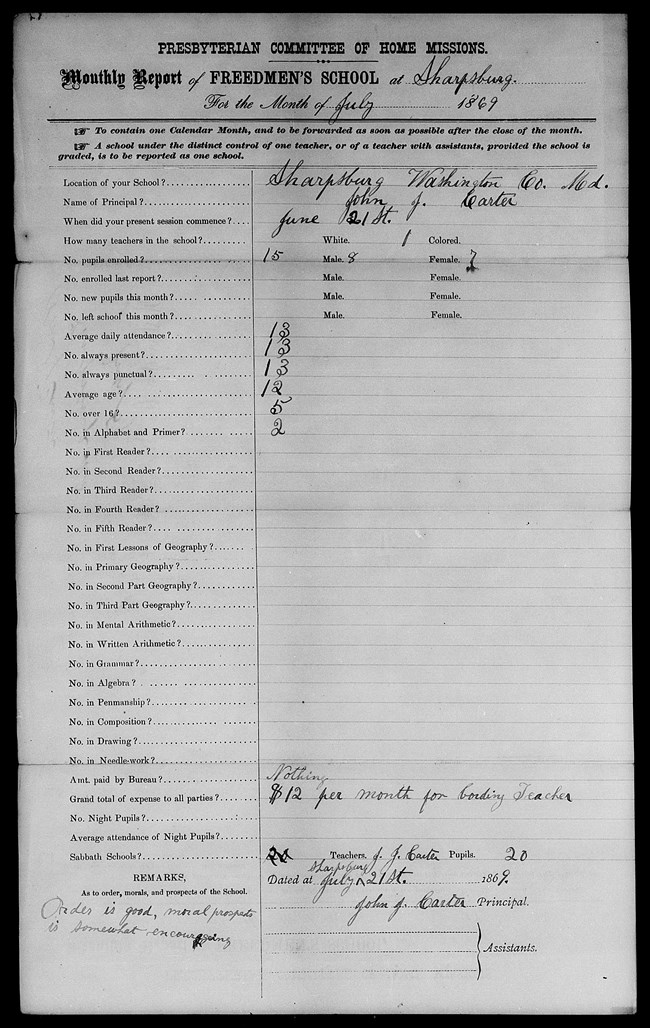 PRESBYTERIAN COMMITTEE OF HOME MISSIONS.
Monthly Report of FREEDMEN'S SCHOOL at Sharpsburg.
For the Month of July 1869
☞ To contain one Calendar Month, and to be forwarded as soon as possible after the close of the month.
☞ A school under the distinct control of one teacher, or of a teacher with assistants, provided the school is
graded, is to be reported as one school.
Location of your School? Sharpsburg Washington Co. Md.
Name of Principal? John J. Carter
When did your present session commence? June 21st.
How many teachers in the school? White. 1 Colored.
No. pupils enrolled? 15 Male. 8 Female. 7
No. enrolled last report? Male. Female.
No. new pupils this month? Male. Female.
No. left school this month? Male. Female.
Average daily attendance? 13
No. always present? 13
No. always punctual? 13
Average age? 12
No. over 16? 5
No. in Alphabet and Primer? 2
No. in First Reader?
No. in Second Reader?
No. in Third Reader?
No. in Fourth Reader?
No. in Fifth Reader?
No. in First Lessons of Geography?
No. in Primary Geography?
No. in Second Part Geography?
No. in Third Part Geography?
No. in Mental Arithmetic?
No. in Written Arithmetic?
No. in Grammar?
No. in Algebra?
No. in Penmanship?
No. in Composition?
No. in Drawing?
No. in Needle-work?
Amt. paid by Bureau? Nothing
Grand total of expense to all parties? $12 per month for bording Teacher
No. Night Pupils?
Average attendance of Night Pupils?
Sabbath Schools? Teachers. J. J. Carter Pupils. 20
REMARKS,
As to order, morals, and prospects of the School.
Order is good, moral prospects
is somewhat encouraging
Sharpsburg
Dated at July 21st. 1869.
John J. Carter Principal.
Assistants.